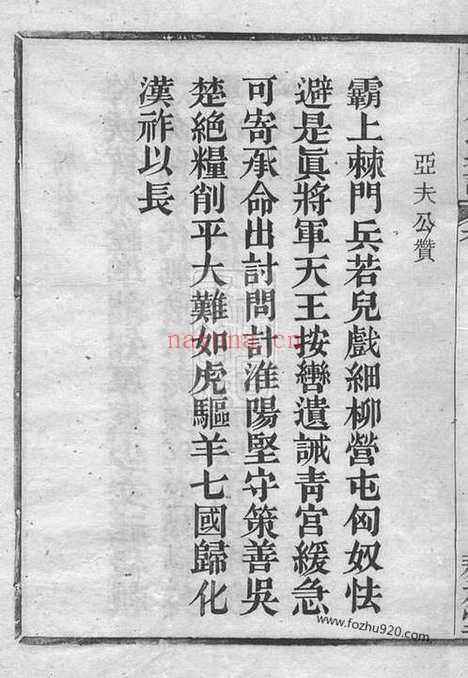 亞夫公贊
霸上棘門兵若兒戲細柳營屯匈奴怯
避是眞將軍天王按轡遺誡靑宮緩急
可寄承命出討問計淮陽堅守策善吳
楚絕糧削平大難如虎驅羊七國歸化
漢祚以長
nayona.cn
www.fozhu920.com